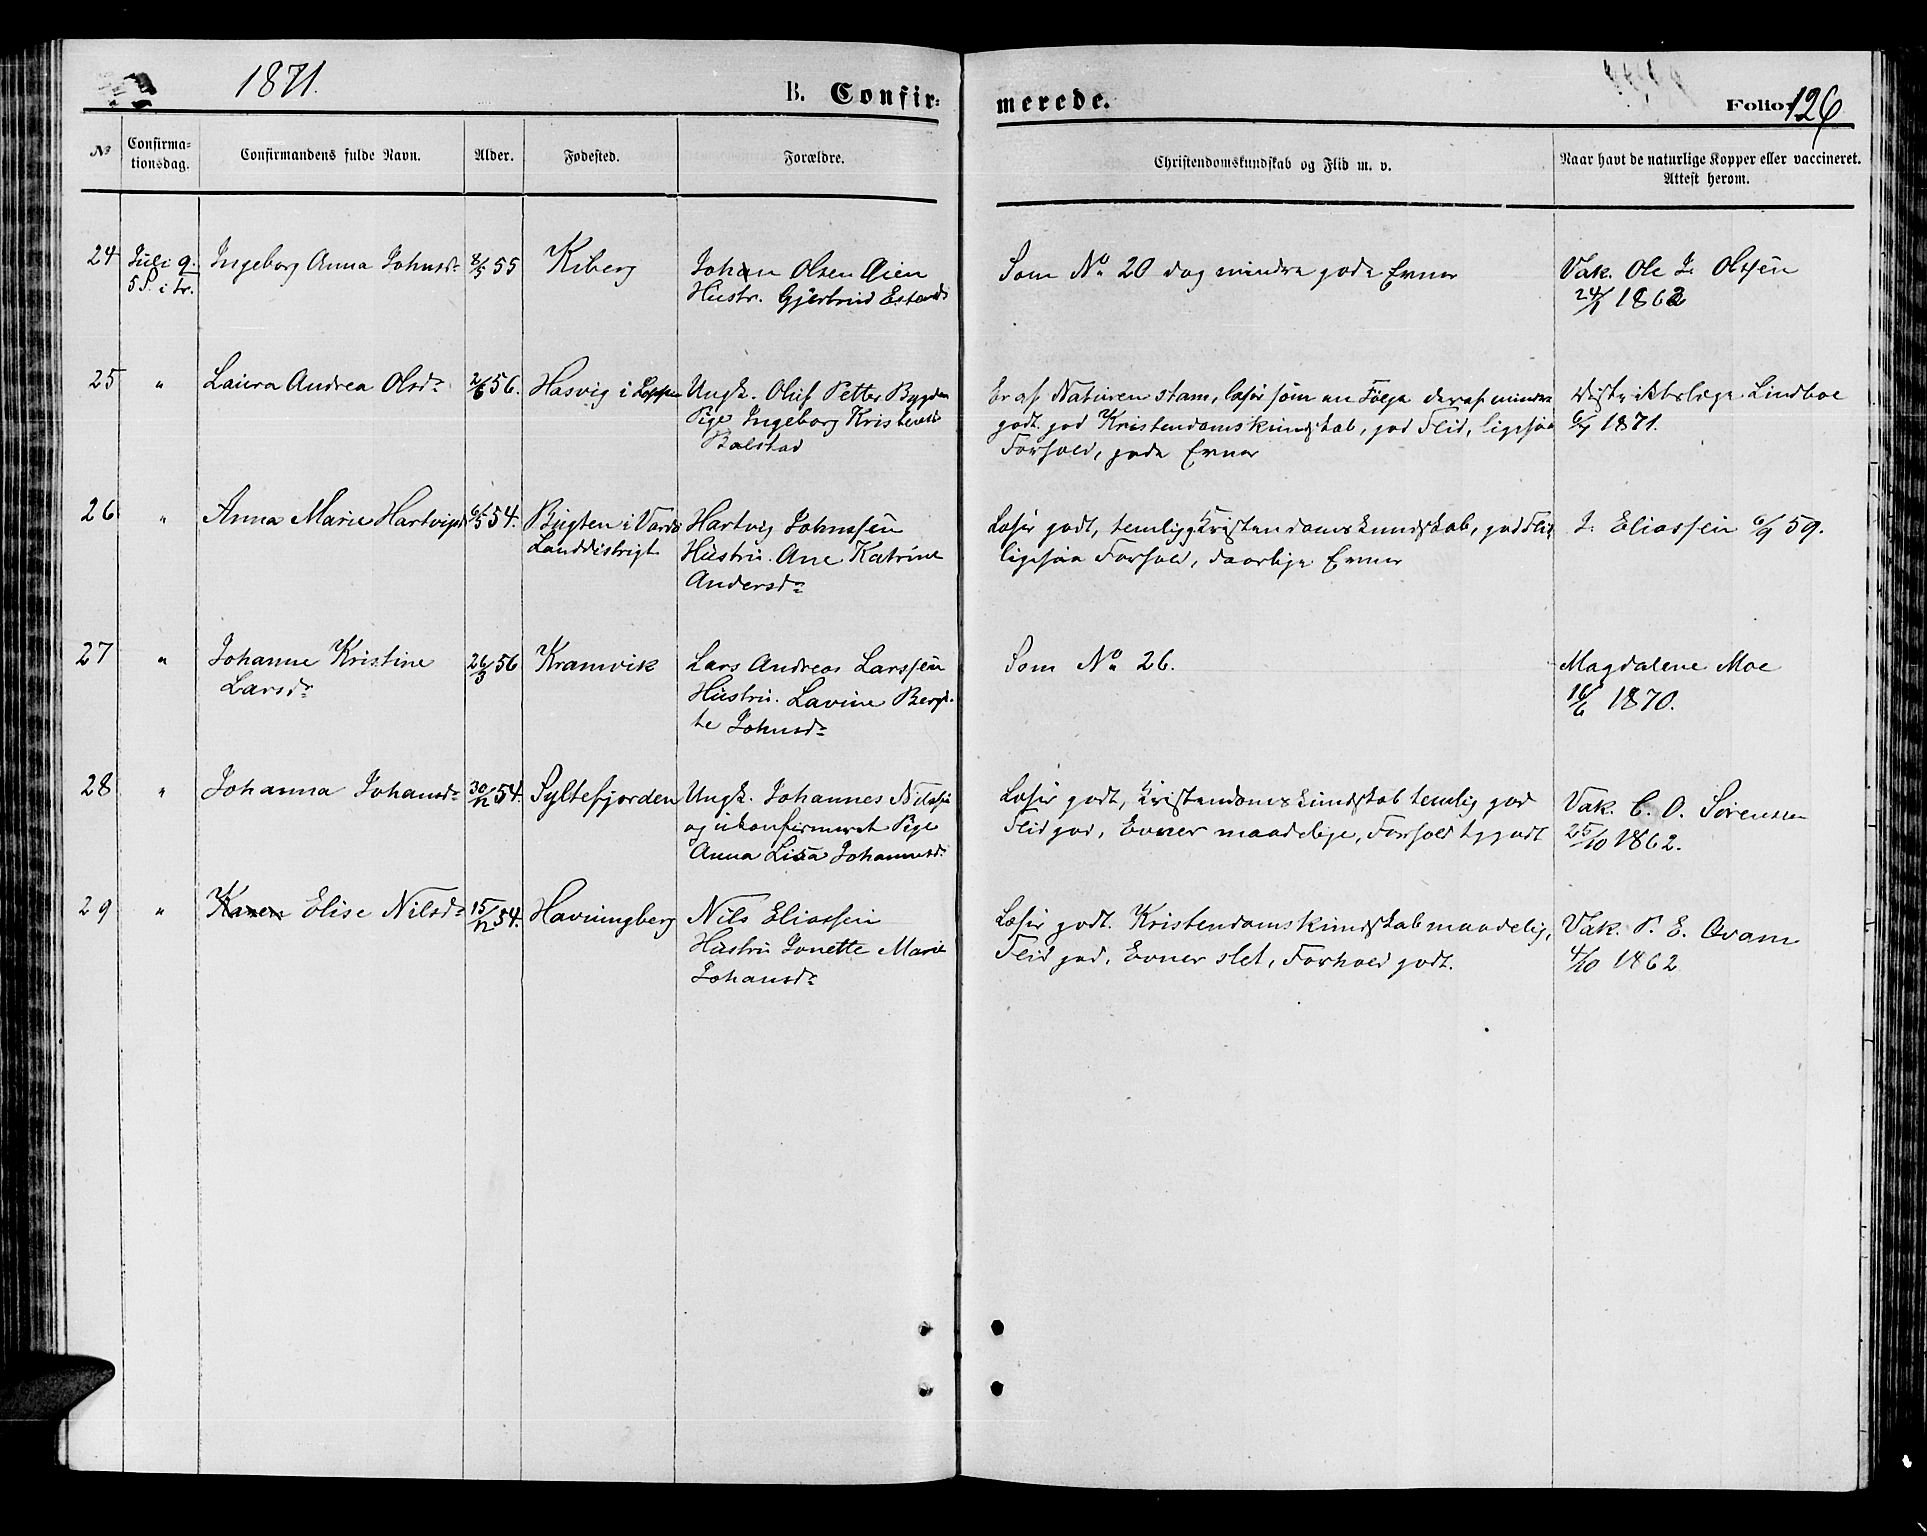 1871.
B. Confir=
merede.
Folio 126
No
Confirma=
tionsdag.
Confirmandens fulde Navn.
Alder.
Fødested.
Forældre.
Christendomskundskab og Flid m. v.
Naar havt de naturlige Kopper eller vaccineret.
Attest herom.
24 Juli 9. Ingeborg Anna Johnsd. 55 Kiberg Johan Olsen Hustr. Gjertrud
5 S. i tr.
Som No 20 dog mindre gode Evner
Vak. Ole J. Olssen
24/ 1862
25 " Laura Andrea Olsd. 2/6 56. Hasvig i Loppen
Ungk. Oluf Petter Bygden
Pige Ingeborg Kristensd.
Balstad
Er af Naturen stam, læser som en Følge deraf mindre
godt. god Kristendomskundskab, god Flid, ligesaa
Forhold, gode Evner
Distriktslæge Lindboe
6/7 1871.
26 " Anna Marie Hartvigsd. 6/5 54. Bugten i Vardø
Landdistrigt
Hartvig Johnssen
Hustru. Ane Katrine
Andersd.
Læser godt, temlig g Kristendomskundskab, god Flid,
ligesaa Forhold, daarlige Evner
J. Eliassen 6/9 59.
27 " Johanne Kristine
Larsd.
26/3 56 Kramvik
Lars Andreas Larssen
Hustru. Lavine Bergit-
te Johnsd.
Som No 26.
Magdalene Moe
16/6 1870.
28 " Johanna Johansd. 30/12 54. Syltefjorden
Ungk. Johannes Nilssen
og ukonfirmeret Pige
Anna Lisa Johannesd.
Læser godt, Kristendomskundskab temlig god
Flid god, Evner maadelige, Forhold godt
Vak. C. O. Sørenssen
25/10 1862.
29 " Karen Elise Nilsd. 15/12 54. Havningberg
Nils Eliassen
Hustru Jonette Marie
Johansd.
Læser godt. Kristendomskundskab maadelig,
Flid god, Evner slet, Forhold godt.
Vak. P. E. Qvam
4/10 1862